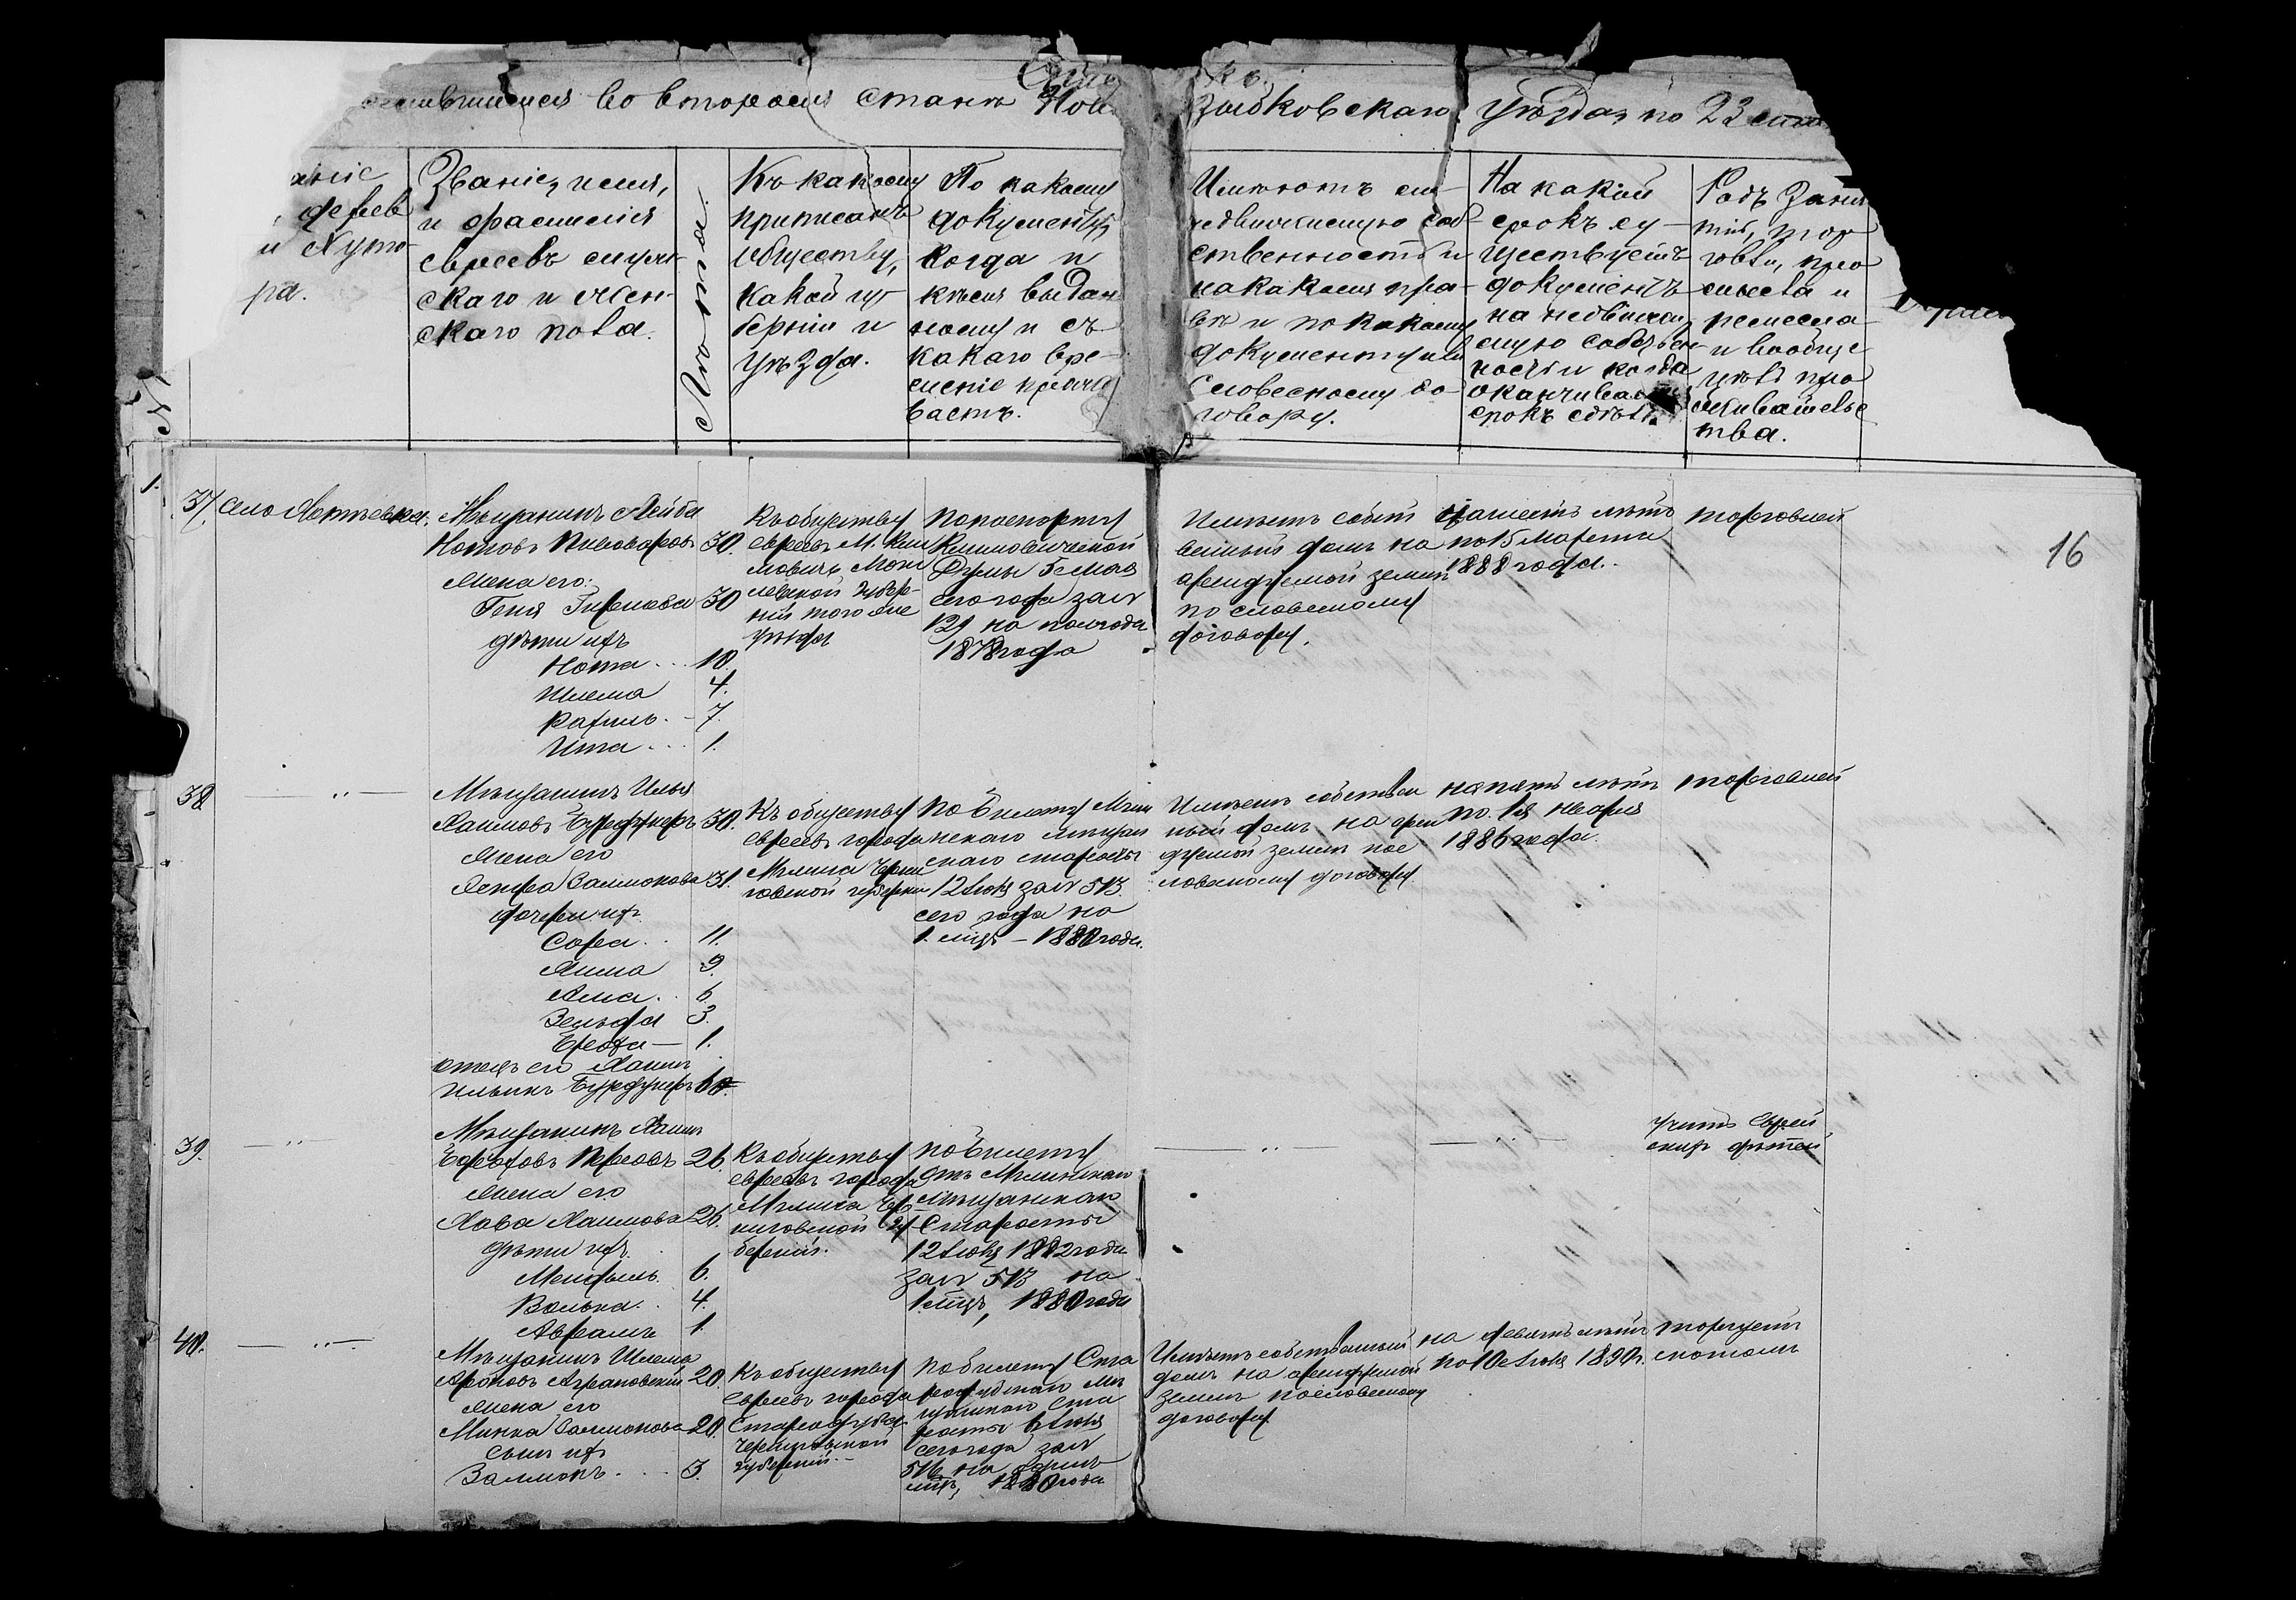 Списокъ
во второмъ станѣ Новозыбковскаго уѣзда, по 23
деревни
и хуто-
ра.
Званіе, имя,
и фамилія
евреевъ муж-
скаго и жен-
скаго пола.
Лѣта.
Къ какому
приписанъ
обществу,
какой гу-
берніи и
уѣзда.
По какому
документу,
когда и
кѣмъ выдан-
ному и съ
какого вре-
мени прожи-
ваетъ.
Имѣютъ ли
недвижимую соб-
ственность и
на какомъ пра-
вѣ и по какому
документу или
словесному до-
говору.
На какой
срокъ су-
ществуетъ
документъ
на недвижи-
мую собствен-
ность и когда
оканчивается
срокъ
Родъ заня-
тій, тор-
говли, про-
мысла и
ремесла
и вообще
прожи-
вательс
тва.
16
37. Село
Мѣщанинъ Лейба
Нотовъ Пивоваровъ 30.
Жена его:
Геня 30
дѣти ихъ
Нота . . . 10.
Шлема 4.
Рахиль . - 7.
Ита . . . 1.
Къ обществу
евреевъ м. Кли
мовичъ Моги
левской губер-
ніи того же
уѣзда
По паспорту
Климовической
Думы 5 мая
сего года за №
129 на полгода
1878 года
Имѣетъ собст
венный домъ на
арендуемой земли
по словесному
договору.
лѣтъ
по 15 Марта
1888 года.
торговлей
38
Мѣщанинъ Илья
Хаимовъ Бурдунеръ 30.
Жена его
Залмонова 31.
дочери ихъ
Сора . . 11.
9.
6
Зельда 3.
1.
отецъ его Хаимъ
Илькинъ Бурдунеръ
Къ обществу
евреевъ города
Мглина Черни
говской губерніи
По билету Мгли
нскаго мѣщан
скаго старосты
12 Іюня за № 513
сего года на
1 мцъ - 1880 года.
Имѣетъ собствен
ный домъ на арен
дуемой земли по с
ловесному договору
на пять лѣтъ
по 1я Января
1886 года.
торговлей
39.
Мѣщанинъ Хаимъ
26.
Жена его
Хава Хаимова 26.
дѣти ихъ
Мендель 6.
Волька . . 4.
Авраамъ 1
Къ обществу
евреевъ города
Мглина Чер
ниговской гу
берніи.
По билету
отъ Мглинскаго
мѣщанскаго
Старосты
12 Іюня 1882 года
за № 513 на
1 мцъ, 1880 года
Учитъ Еврей
скихъ дѣтей
40.
Мѣщанинъ Шлема
Ароновъ Аграновскій 20.
Жена его
Минка Залмонова 20.
сынъ ихъ
Залмонъ . . . 3.
Къ обществу
Евреевъ города
Стародуба
Черниговской
губерніи. -
По билету Ста
родубскаго мѣ
щанскаго Ста
росты 6 Іюня
сего года за №
516 на одинъ
мцъ, 1880 года
Имѣетъ собственный
домъ на арендуемой
земли по словесному
договору
на девять лѣтъ
по 10е Іюня 1890 г.
торгуетъ
скотомъ